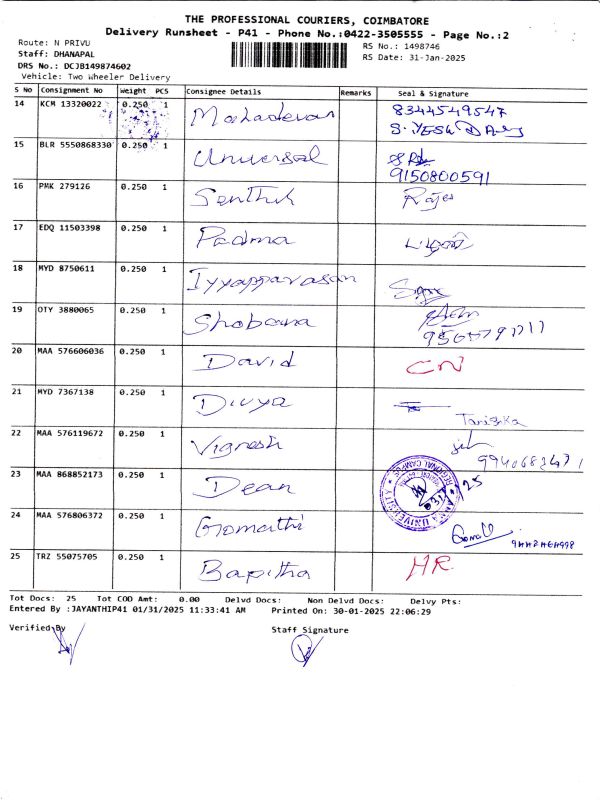 THE PROFESSIONAL COURIERS, COIMBATORE
Delivery Runsheet - P41 - Phone No.:0422-3505555 - Page No.:2
Route: N PRIVU
RS No.: 1498746
Staff: DHANAPAL
RS Date: 31-Jan-2025
DRS No.: DCJB149874602
Vehicle: Two Wheeler Delivery
S No Consignment No Weight PCS Consignee Details Remarks Seal & Signature
14 KCM 13320022 0.250 1 Mahadevan 8344549547
15 BLR 5550868330 0.250 1 Universal
9150800591
16 PMK 279126 0.250 1 Senthil Rajes
17 EDQ 11503398 0.250 1 Padma
18 MYD 8750611 0.250 1 Iyyappavasan
19 OTY 3880065 0.250 1 Shobana
20 MAA 576606036 0.250 1 David CN
21 MYD 7367138 0.250 1 Divya
Tanishka
22 MAA 576119672 0.250 1 Vignesh
23 MAA 868852173 0.250 1 Dean
REGIONAL CAMPUS
ANNA UNIVERSITY
24 MAA 576806372 0.250 1 Gomathi
25 TRZ 55075705 0.250 1 Babitha HR
Tot Docs: 25 Tot COD Amt: 0.00 Delvd Docs: Non Delvd Docs: Delvy Pts:
Entered By :JAYANTHIP41 01/31/2025 11:33:41 AM Printed On: 30-01-2025 22:06:29
Verified By Staff Signature